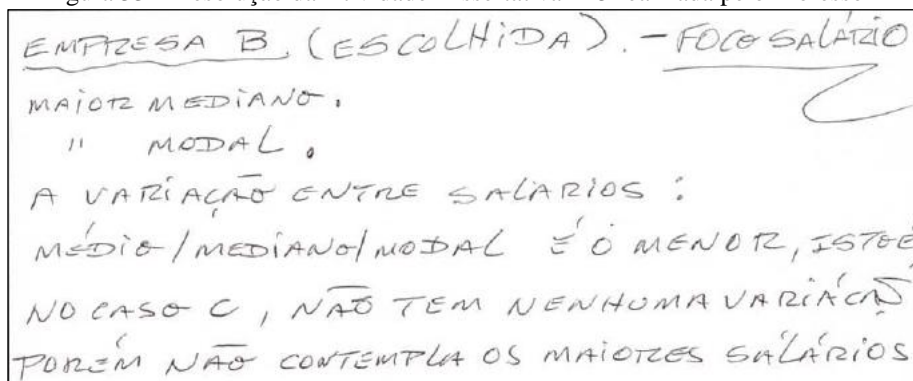 EMPRESA B (ESCOLHIDA). - FOCO SALÁRIO
MAIOR MEDIANO.
" MODAL.
A VARIAÇÃO ENTRE SALARIOS:
MÉDIO/MEDIANO/MODAL É O MENOR, ISTO É
NO CASO C, NÃO TEM NENHUMA VARIAÇÃO
PORÉM NÃO CONTEMPLA OS MAIORES SALÁRIOS